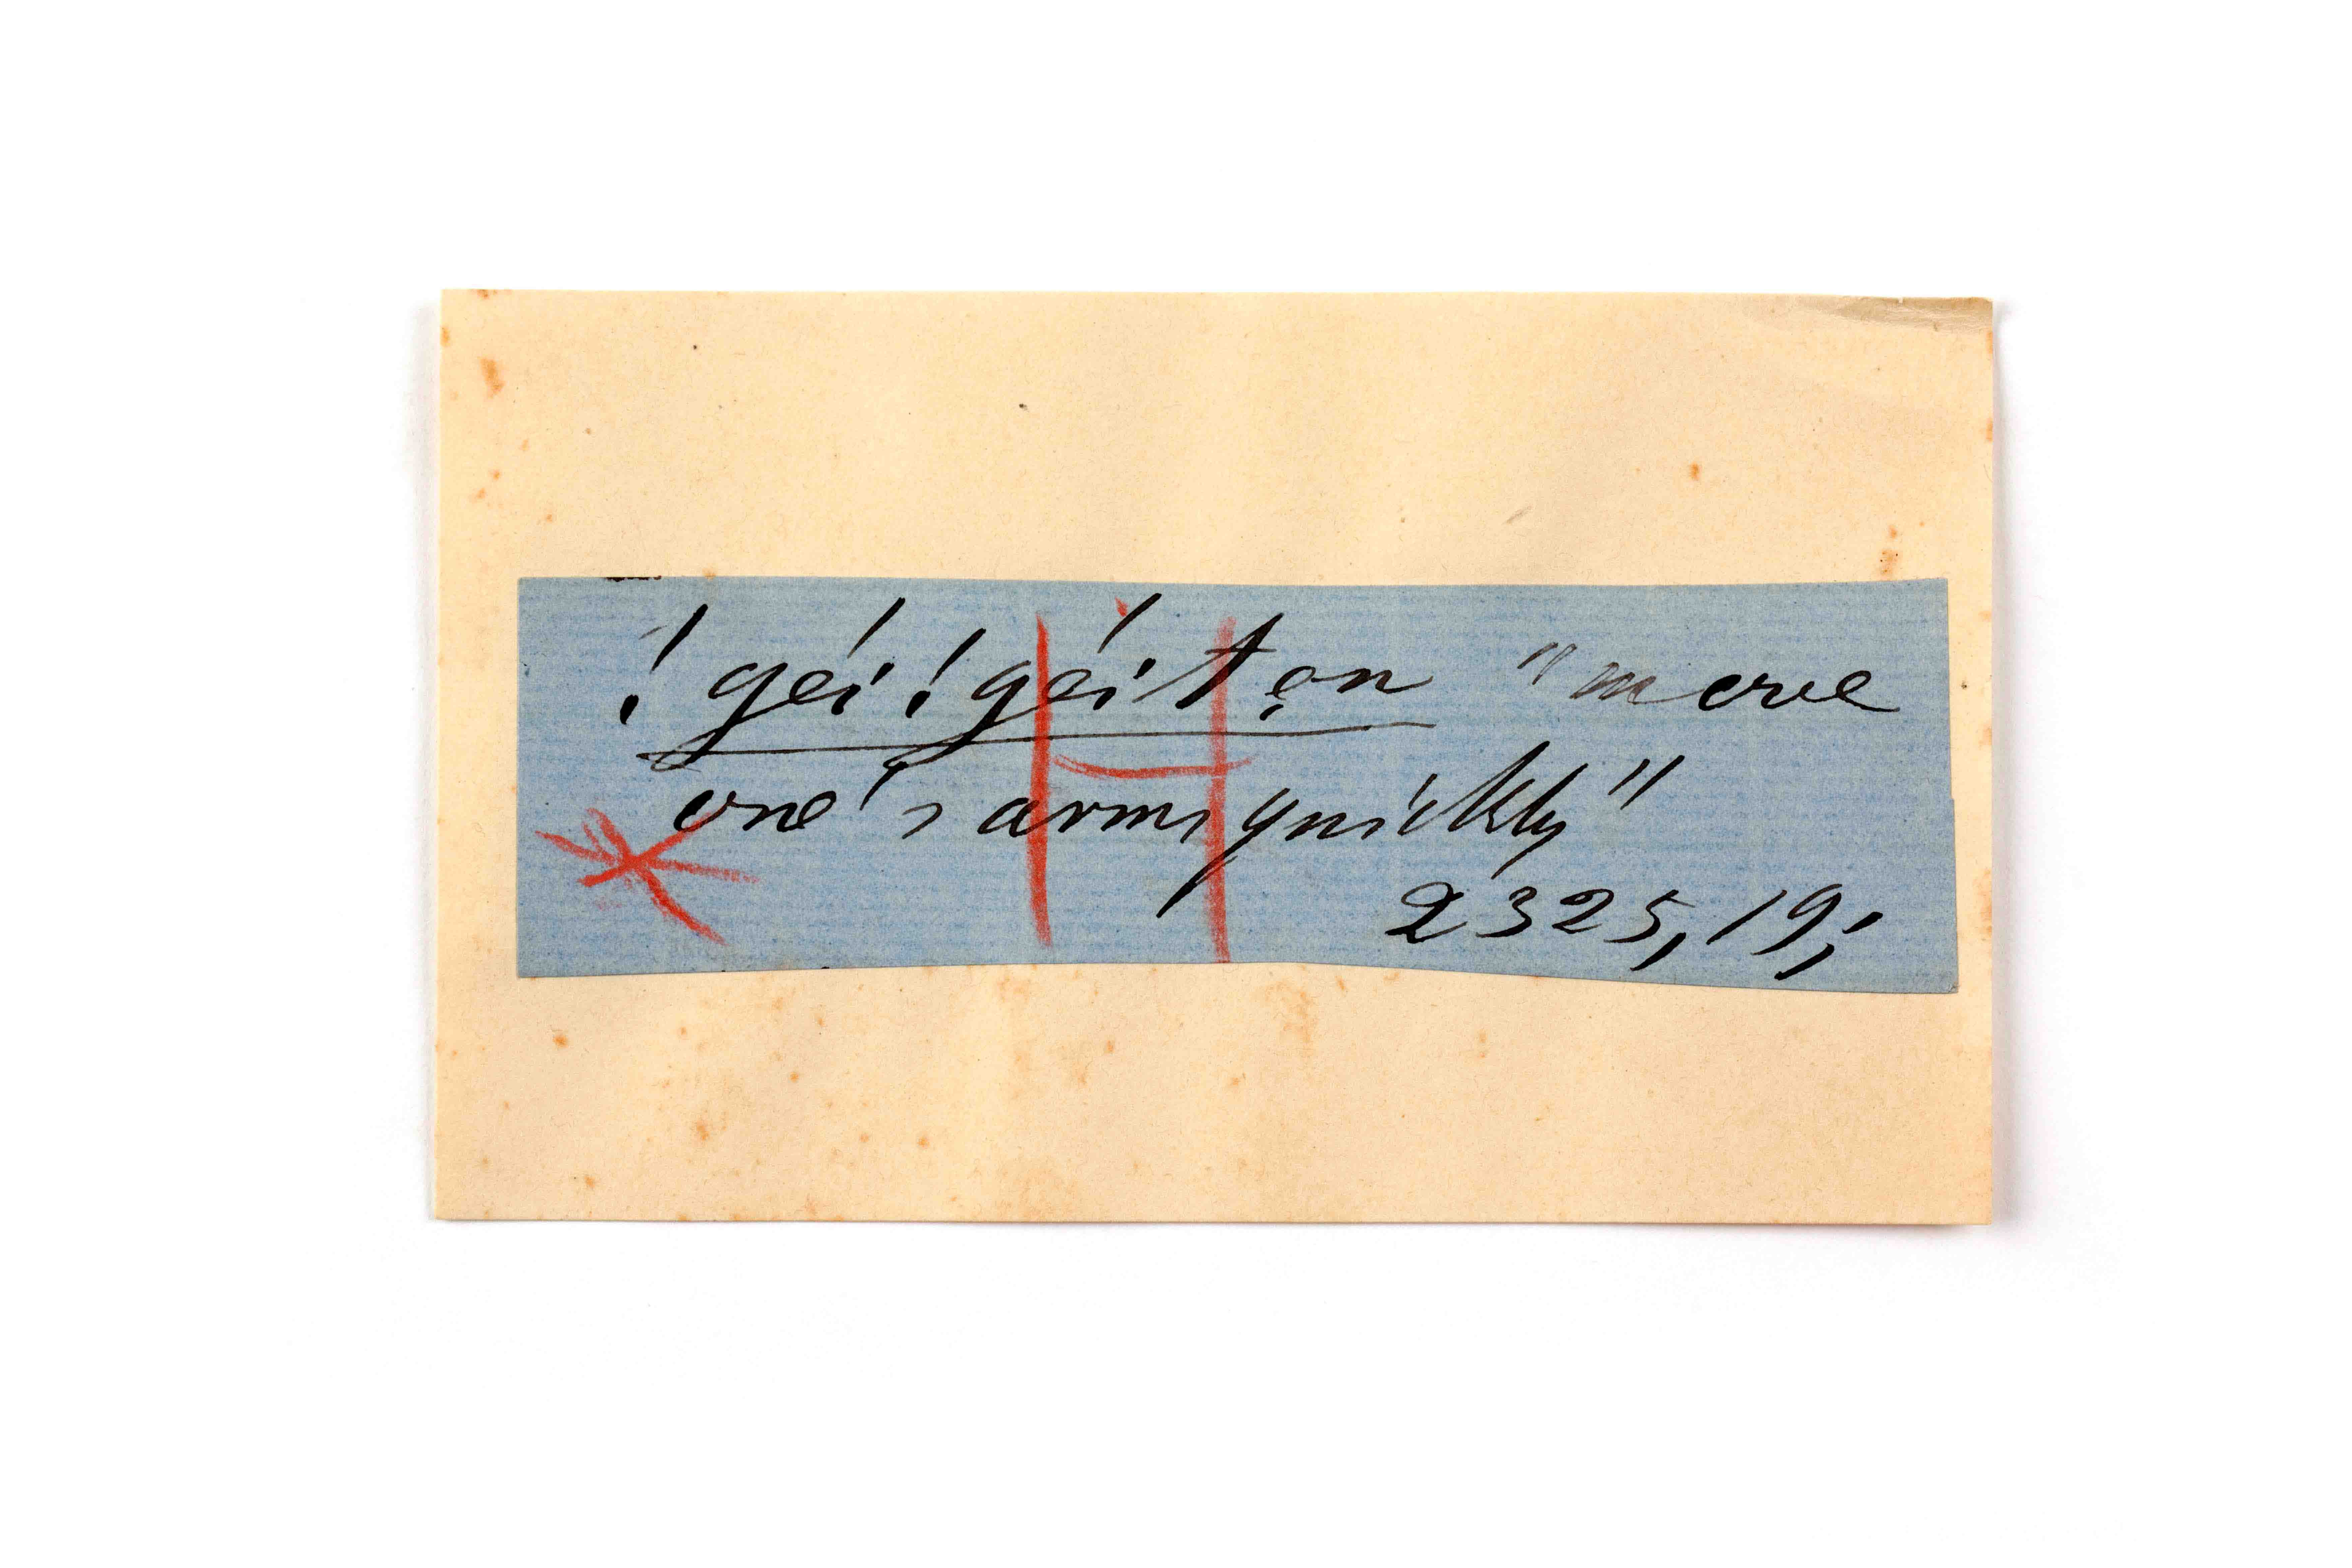 !géi!géitẹn "move
one's arms quickly"
2325, 19;